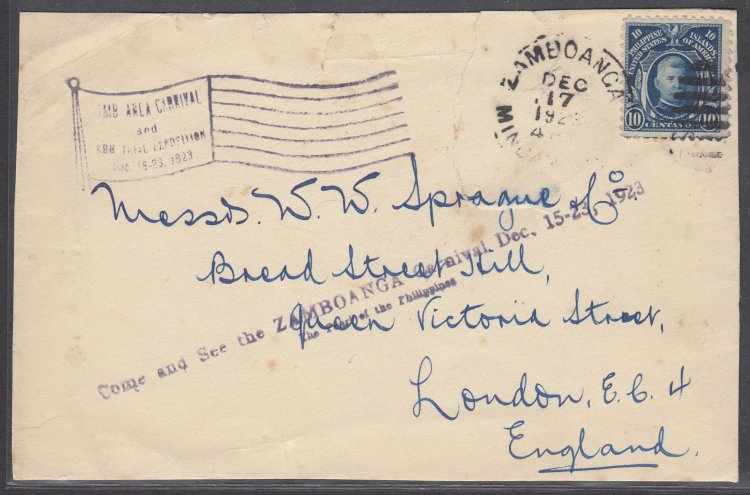 AMB ANGA CARNIVAL
and
EXPOSITION
Dec. 15-23, 1923
ZAMBOANGA
DEC
17
1923
10 10
PHILIPPINE ISLANDS
UNITED STATES OF AMERICA
10 CENTAVOS 10
Messrs. W. W. Sprague & Co.
Bread Street Hill,
Queen Victoria Street,
London, E.C. 4
England.
Come and See the ZAMBOANGA Carnival Dec. 15-23, 1923
The Pearl of the Philippines